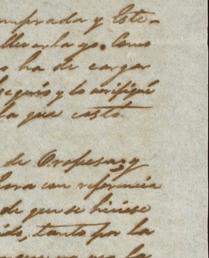 mprada y Este=
llevarla yo. Como
ha de cargar
seguro y lo verifique
la que costó
de Oropesa, y
con referencia
de que se hiciese
ido, tanto por la
la